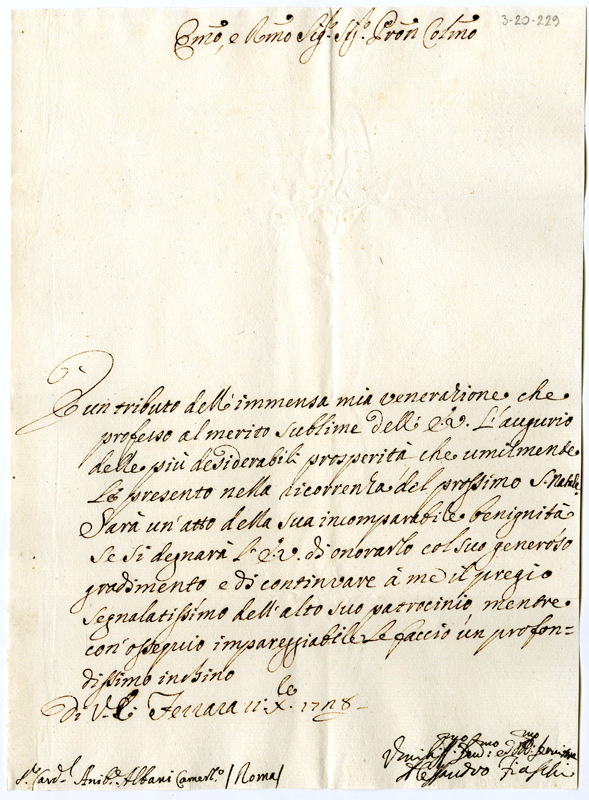 3-20-229
Emo, e Rmo Sigr. Sigr. Pron Colmo
È un tributo dell'immensa mia venerazione che
professo al merito sublime dell'E.V. L'augurio
delle più desiderabili prosperità che umilmente
Le presento nella ricorrenza del prossimo S. Natale.
Sarà un'atto della sua incomparabile benignità
se si degnarà l'E.V. di onorarlo col suo generoso
gradimento e di continuare à me il pregio
segnalatissimo dell'alto suo patrocinio, mentre
con'ossequio impareggiabile Le faccio un profon=
dissimo inchino
Di V.E. Ferrara 11 Xbre 1728
Sr. Card.l Anib.e Albani Camerl.o /Roma/
Umil.mo Dev.mo ed Obb.mo Servitore
Alessandro Fiaschi